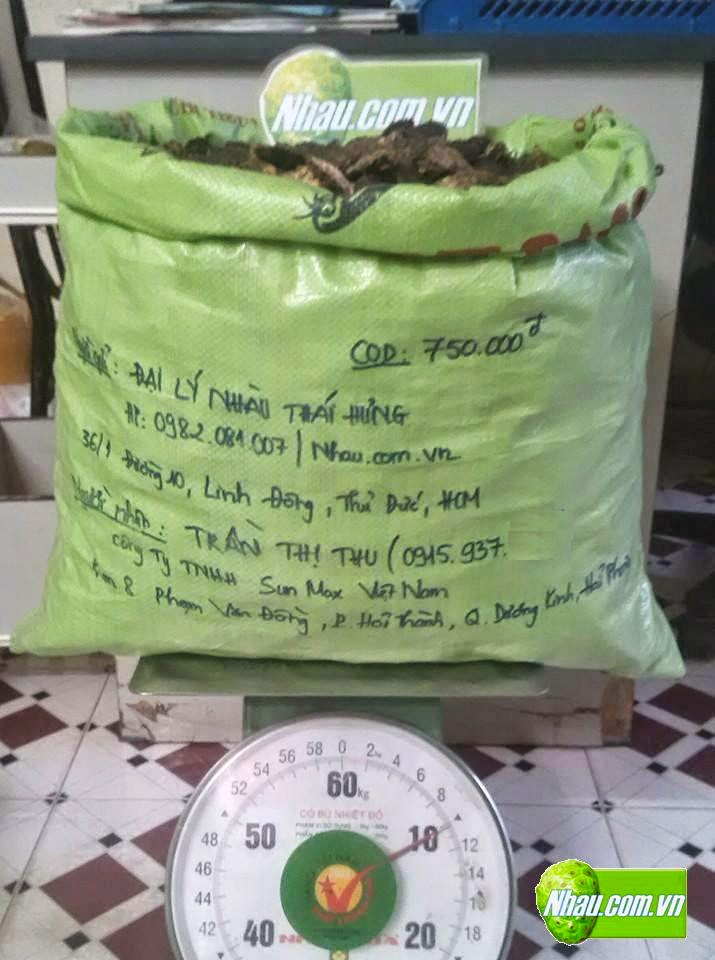 Nhau.com.vn
COD: 750.000đ
: ĐẠI LÝ NHÀU THÁI HƯNG
ĐT: 0982.081.007 / Nhau.com.vn
36/1 Đường 10, Linh Đông, Thủ Đức, HCM
Người nhận: TRẦN THỊ THU (0915.937.
Công Ty TNHH Sun Max Việt Nam
Km 8 Phạm Văn Đồng, P. Hải Thành, Q. Dương Kinh, Hải Phòng
0 2 6 8 12 14 16 18
58 56 54 52 48 46 44 42
60kg
CÓ BÙ NHIỆT ĐỘ
50 10
40 20
Nhau.com.vn